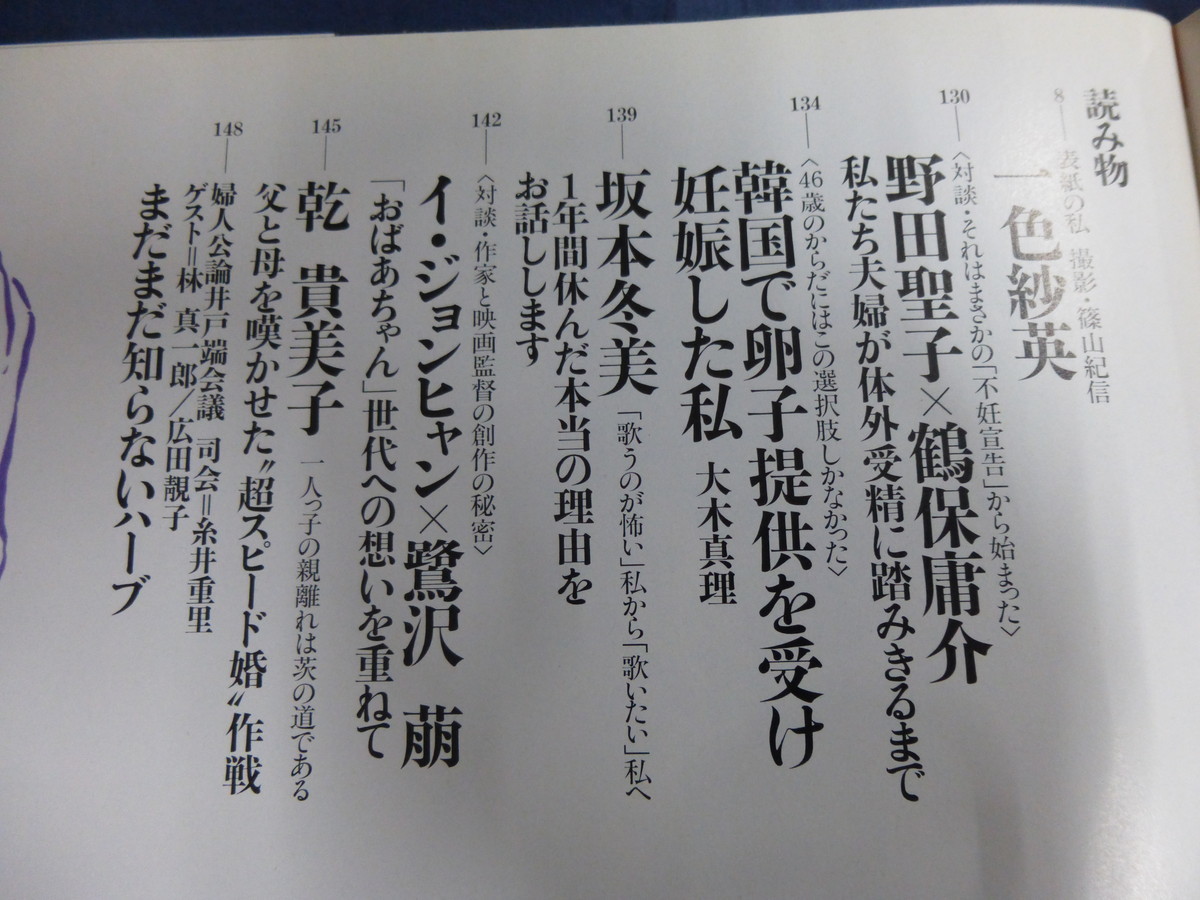 読み物
8 表紙の私 撮影・篠山紀信
一色紗英
130 〈対談・それはまさかの「不妊宣告」から始まった〉
野田聖子×鶴保庸介
私たち夫婦が体外受精に踏みきるまで
134 〈46歳のからだにはこの選択肢しかなかった〉
韓国で卵子提供を受け
妊娠した私 大木真理
139 坂本冬美 「歌うのが怖い」私から「歌いたい」私へ
1年間休んだ本当の理由を
お話しします
142 〈対談・作家と映画監督の創作の秘密〉
イ・ジョンヒャン×鷺沢 萠
「おばあちゃん」世代への想いを重ねて
145 乾 貴美子 一人っ子の親離れは茨の道である
父と母を嘆かせた〝超スピード婚〟作戦
148 婦人公論井戸端会議 司会=糸井重里
ゲスト=林 真一郎/広田靚子
まだまだ知らないハーブ